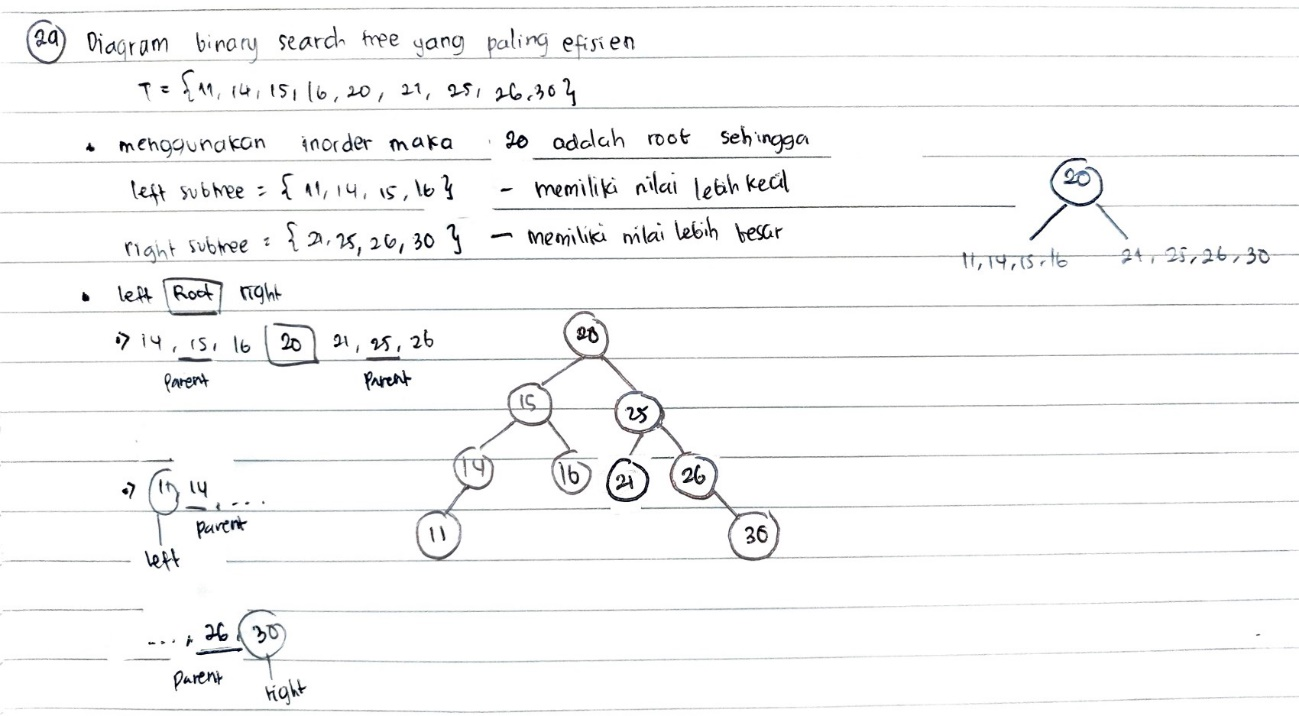 2a Diagram binary search tree yang paling efisien
T = {11, 14, 15, 16, 20, 21, 25, 26, 30}
• menggunakan inorder maka 20 adalah root sehingga
left subtree = {11, 14, 15, 16} - memiliki nilai lebih kecil
right subtree = {21, 25, 26, 30} - memiliki nilai lebih besar
20
11, 14, 15, 16 21, 25, 26, 30
• left Root right
14, 15, 16 20 21, 25, 26
Parent Parent
20
15 25
14 16 21 26
11 30
11, 14, ....
Parent
left
...., 26, 30
Parent right